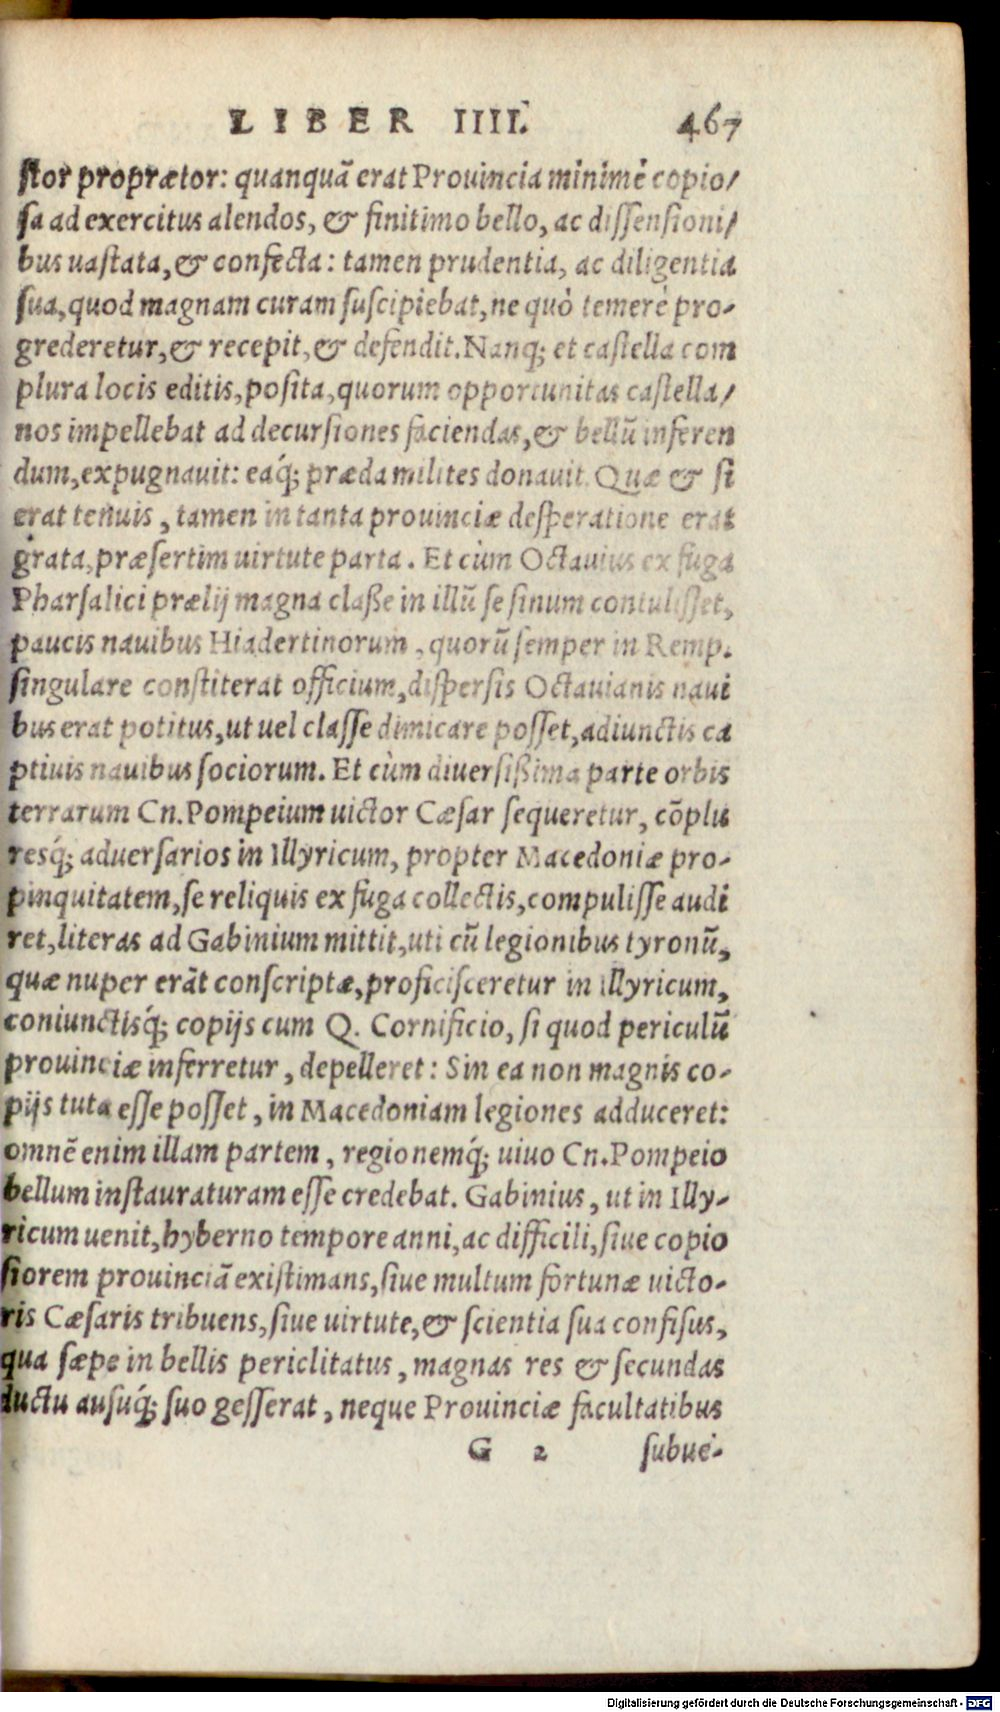 LIBER IIII. 467
stor proprætor: quanquã erat Prouincia minimè copio/
sa ad exercitus alendos, & finitimo bello, ac dissensioni/
bus uastata, & confecta: tamen prudentia, ac diligentia
sua, quod magnam curam suscipiebat, ne quò temerè pro-
grederetur, & recepit, & defendit. Nanq; et castella com
plura locis editis, posita, quorum opportunitas castella/
nos impellebat ad decursiones faciendas, & bellũ inferen
dum, expugnauit: eaq́; præda milites donauit. Quæ & si
erat tenuis, tamen in tanta prouinciæ desperatione erat
grata, præsertim uirtute parta. Et cùm Octauius ex fuga
Pharsalici prælij magna claße in illũ se sinum contulisset,
paucis nauibus Hiadertinorum, quorũ semper in Remp.
singulare constiterat officium, dispersis Octauianis naui
bus erat potitus, ut uel classe dimicare posset, adiunctis ca
ptiuis nauibus sociorum. Et cùm diuersißima parte orbis
terrarum Cn. Pompeium uictor Cæsar sequeretur, cõplu
resq́; aduersarios in Illyricum, propter Macedoniæ pro-
pinquitatem, se reliquis ex fuga collectis, compulisse audi
ret, literas ad Gabinium mittit, uti cũ legionibus tyronũ,
quæ nuper erãt conscriptæ, proficisceretur in Illyricum,
coniunctisq́; copijs cum Q. Cornificio, si quod periculũ
prouinciæ inferretur, depelleret: Sin ea non magnis co-
pijs tuta esse posset, in Macedoniam legiones adduceret:
omnẽ enim illam partem, regionemq́; uiuo Cn. Pompeio
bellum instauraturam esse credebat. Gabinius, ut in Illy-
ricum uenit, hyberno tempore anni, ac difficili, siue copio
siorem prouinciã existimans, siue multum fortunæ uicto-
ris Cæsaris tribuens, siue uirtute, & scientia sua confisus,
qua sæpe in bellis periclitatus, magnas res & secundas
ductu ausuq́; suo gesserat, neque Prouinciæ facultatibus
G 2 subue-
Digitalisierung gefördert durch die Deutsche Forschungsgemeinschaft - DFG